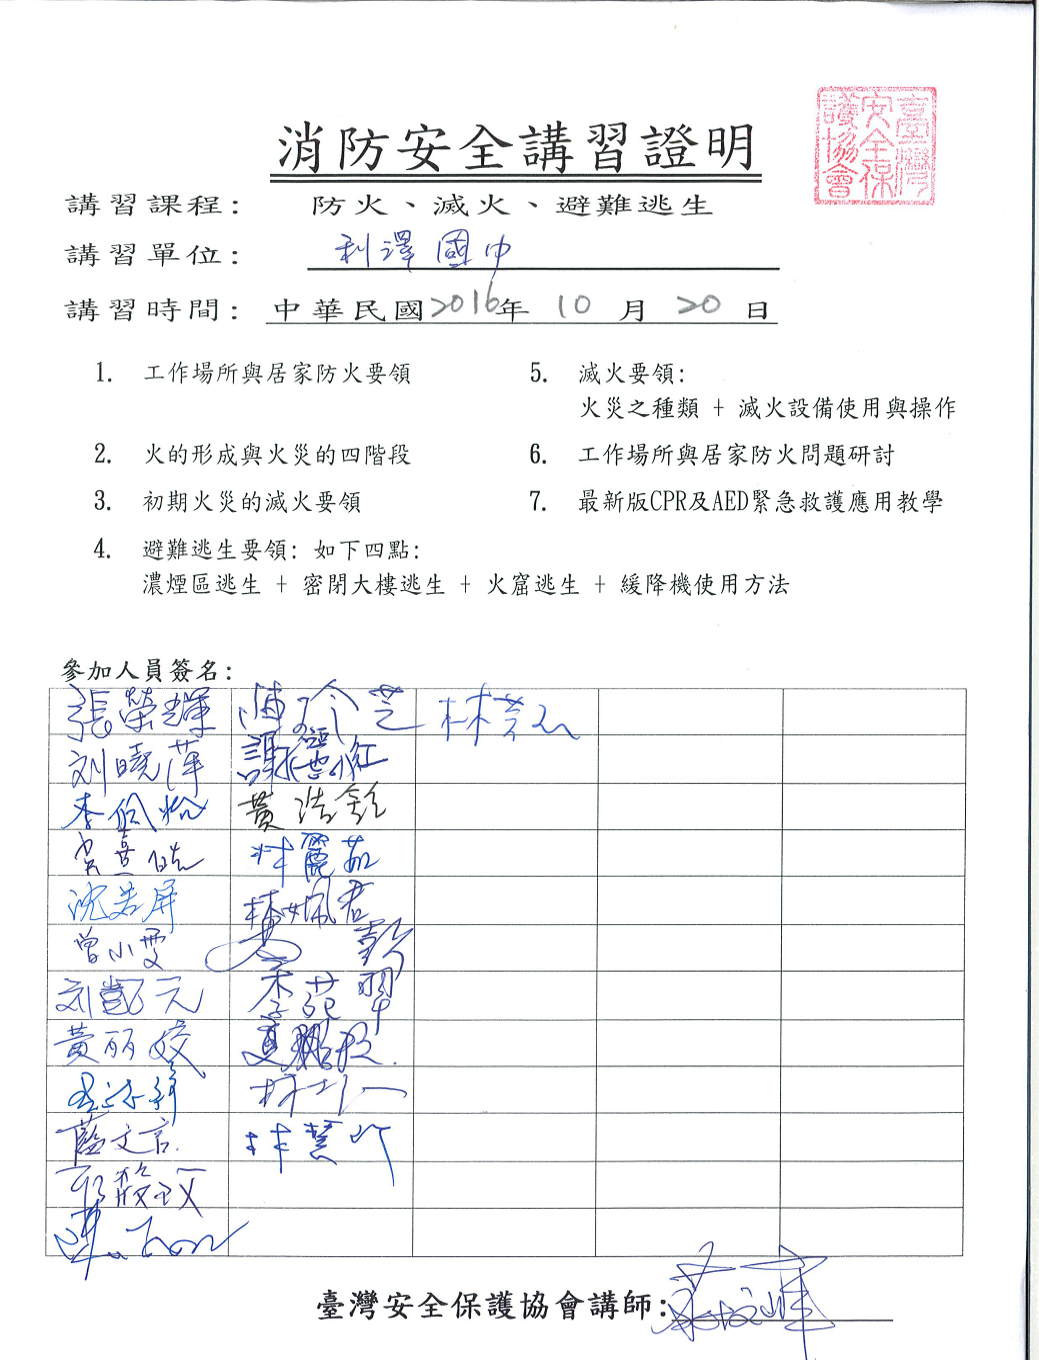 臺灣安全保護協會
消防安全講習證明
講習課程: 防火、滅火、避難逃生
講習單位: 利澤國中
講習時間: 中華民國2016年 10 月 20 日
1. 工作場所與居家防火要領
2. 火的形成與火災的四階段
3. 初期火災的滅火要領
4. 避難逃生要領: 如下四點:
濃煙區逃生 + 密閉大樓逃生 + 火窟逃生 + 緩降機使用方法
5. 滅火要領:
火災之種類 + 滅火設備使用與操作
6. 工作場所與居家防火問題研討
7. 最新版CPR及AED緊急救護應用教學
參加人員簽名:
張榮輝
刘曉萍 謝 紅
李佩 黃浩
林麗茹
沈 屏 林姵君
曾小雯
刘 元 李苑
黃丽姣 夏
藍文言 林慧
臺灣安全保護協會講師: